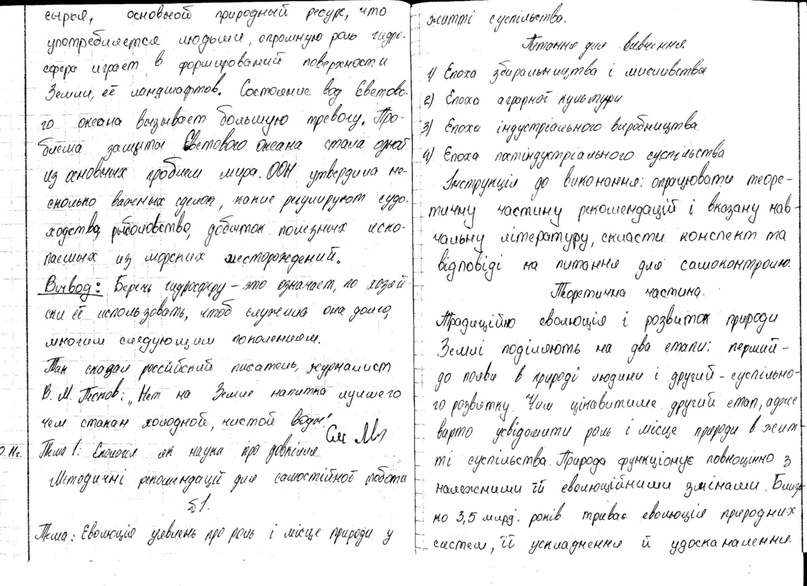 сырья, основной природный ресурс, что
употребляется людьми, огромную роль гидро-
сфера играет в формировании поверхности
Земли, её ландшафтов. Состояние вод Светово-
го океана вызывает большую тревогу. Про-
блема защиты Светового Океана стала одной
из основных проблем мира. ООН утвердила не-
сколько важных сделок, какие регулируют судо-
ходства, рыболовство, добыток полезных иско-
паемых из морских месторождений.
Вывод: Беречь гидросферу - это означает, по хозяй
ски её использовать, чтоб служила она долго,
многим следующим поколениям.
Так сказал российский писатель, журналист
В. М. Песков: "Нет на Земле напитка лучшего
чем стакан холодной, чистой воды"
Тема 1: Екологія як наука про довкілля
Методичні рекомендації для самостійної роботи
§1.
Тема: Еволюція уявлень про роль і місце природи у
житті суспільства.
Питання для вивчення
1) Епоха збиральництва і мисливства
2) Епоха аграрної культури
3) Епоха індустріального виробництва
4) Епоха постіндустріального суспільства
Інструкція до виконання: опрацювати теоре-
тичну частину рекомендацій і вказану нав-
чальну літературу, скласти конспект та
відповіді на питання для самоконтролю.
Теоретична частина.
Традиційно еволюція і розвиток природи
Землі поділяють на два етапи: перший -
до появи в природі людини і другий - суспільно-
го розвитку. Чим цікавитиме другий етап, адже
варто усвідомити роль і місце природи в жит
ті суспільства. Природа функціонує повноцінно з
належними їй еволюційними змінами. Близь
ко 3,5 млрд. років триває еволюція природних
систем, її ускладнення й удосконалення.